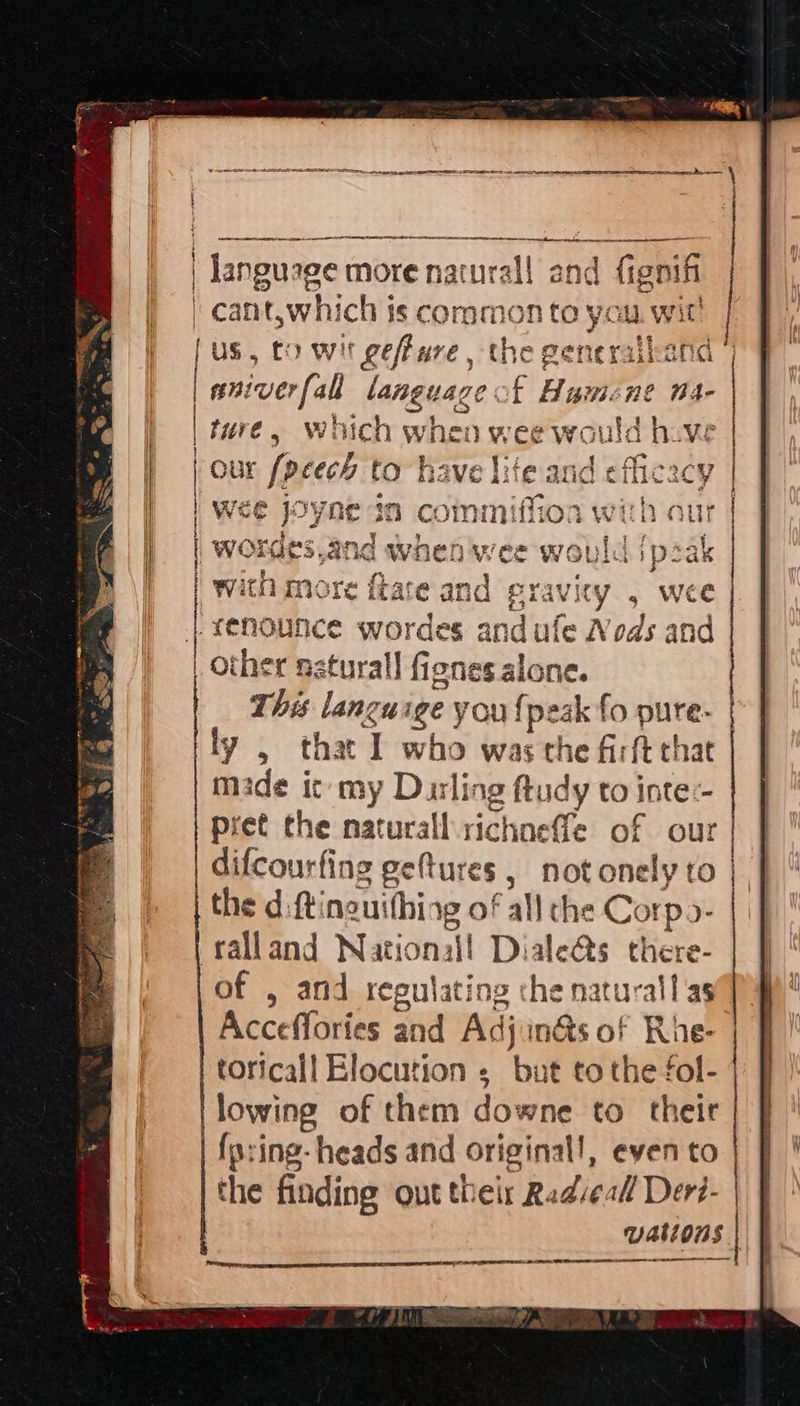 language more naturall and ſignifi
cant, which is common to you wit'
us, to wit geſture, the generall and
univerſall language of Humane na-
ture, which when wee would have
our ſpeech to have life and efficacy
wee joyne in commiſſion with our
wordes, and when wee would ſpeak
with more ſtate and gravity, wee
renounce wordes and uſe Nods and
other naturall ſignes alone.
This language you ſpeak ſo pure-
ly, that I who was the firſt that
made it my Darling ſtudy to inter-
pret the naturall richneſſe of our
diſcourſing geſtures, not onely to
the diſtinguiſhing of all the Corpo-
rall and Nationall Dialects there-
of, and regulating the naturall as
Acceſſories and Adjuncts of Rhe-
toricall Elocution; but to the fol-
lowing of them downe to their
ſpring-heads and originall, even to
the finding out their Radicall Deri-
vations